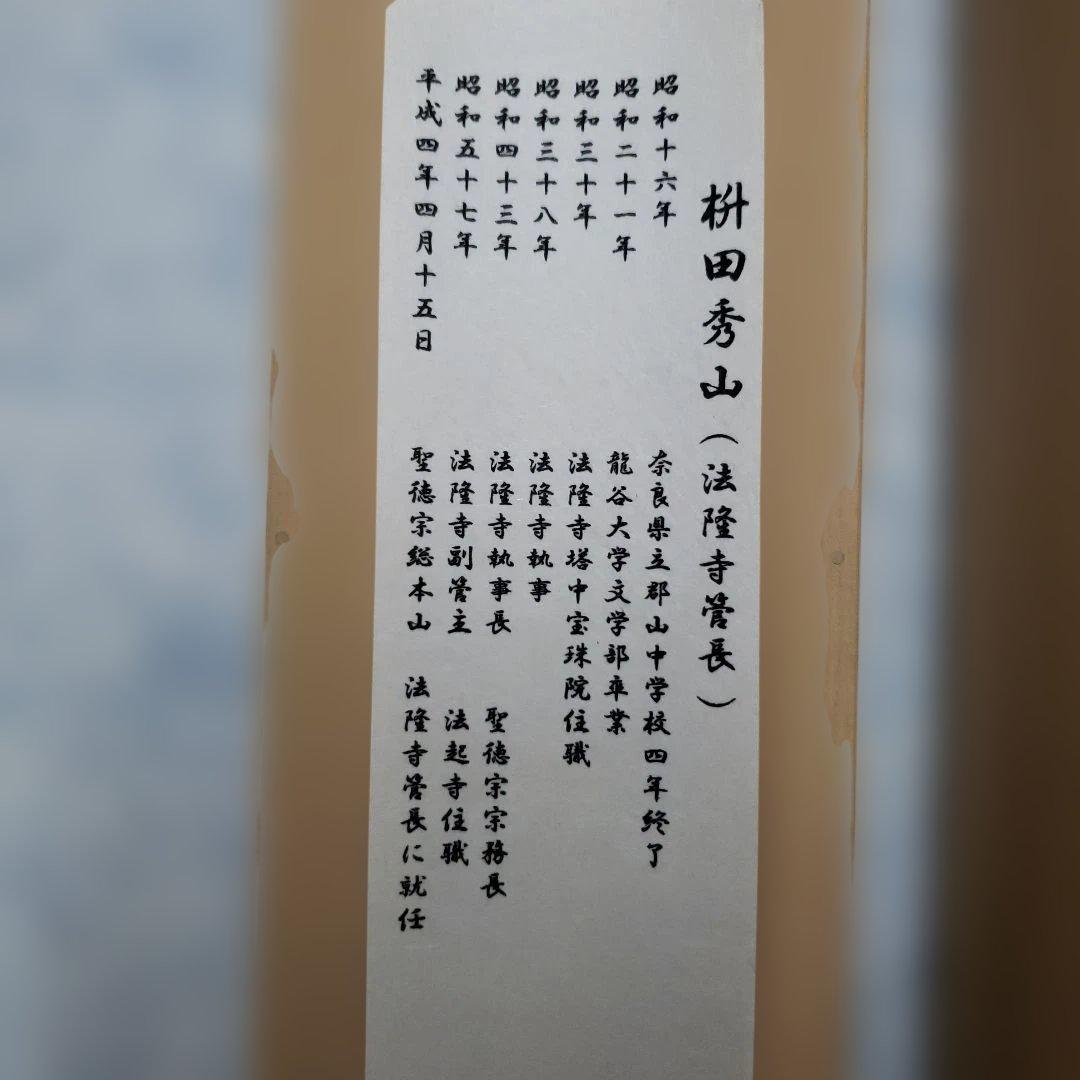 枡田秀山（法隆寺管長）
昭和十六年 奈良県立郡山中学校四年終了
昭和二十一年 龍谷大学文学部卒業
昭和三十年 法隆寺塔中宝珠院住職
昭和三十八年 法隆寺執事
昭和四十三年 法隆寺執事長 聖徳宗宗務長
昭和五十七年 法隆寺副管主 法起寺住職
平成四年四月十五日 聖徳宗総本山 法隆寺管長に就任